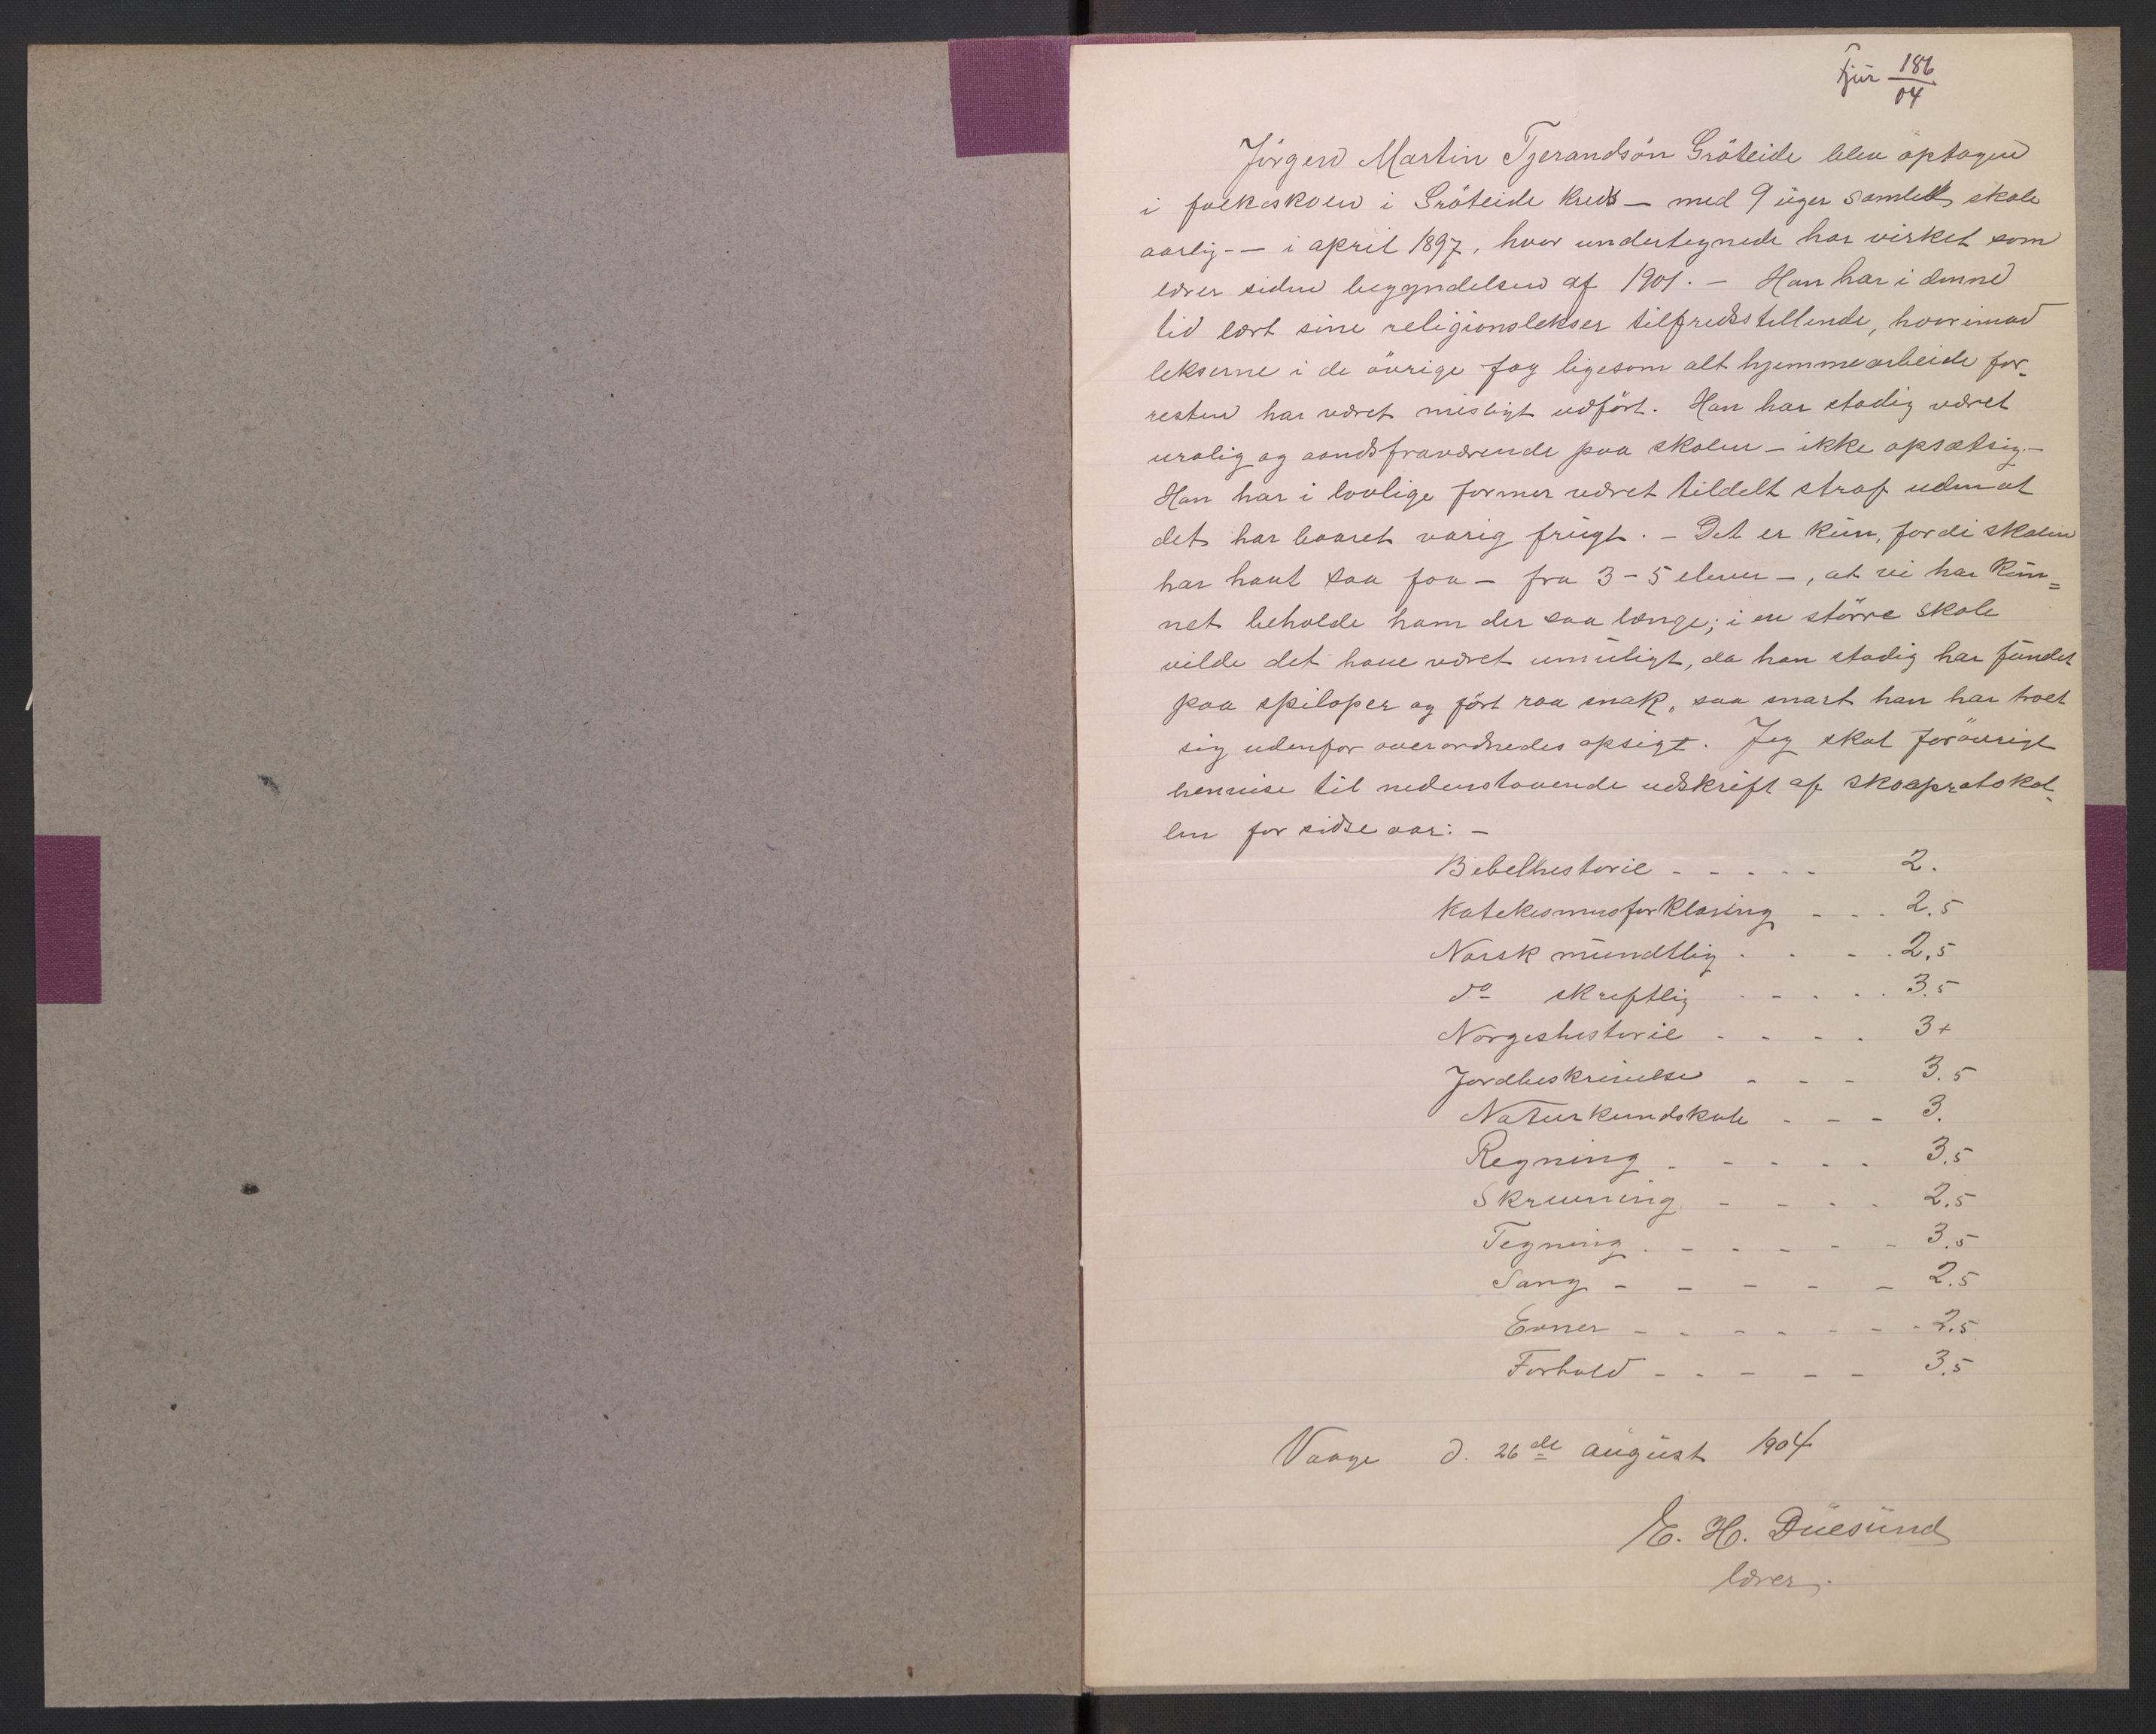 Fjur 186/04
Jörgen Martin Tjerandsön Gröteide blev optagen
i folkeskolen i Gröteide kreds — med 9 uger samlet skole
aarlig — i april 1897, hvor undertegnede har virket som
lærer siden begyndelsen af 1901. — Han har i denne
tid lært sine religionslekser tilfredsstillende, hvorimod
lekserne i de övrige fag ligesom alt hjemmearbeide for-
resten har været misligt udfört. Han har stadig været
urolig og aandsfraværende paa skolen — ikke opsætsig. —
Han har i lovlige former været tildelt straf uden at
det har baaret varig frugt. — Det er kun, fordi skolen
har havt saa faa — fra 3 - 5 elever —, at vi har kun=
net beholde ham der saa længe; i en större skole
vilde det have været umuligt, da han stadig har fundet
paa spiloper og fört raa snak, saa snart han har troet
sig udenfor overordnedes opsigt. Jeg skal forövrigt
henvise til nedenstaaende udskrift af skoleprotokol-
len for sidste aar: —
Bibelhistorie - - - - - 2.
Katekismusforklaring - - - 2.5
Norsk mundtlig - - - - 2.5
do skriftlig - - - - - 3.5
Norgeshistorie - - - - 3+
Jordbeskrivelse - - - 3.5
Naturkundskab - - - 3.
Regning - - - - - 3.5
Skrivning - - - - 2.5
Tegning - - - - - - 3.5
Sang - - - - - 2.5
Evner - - - - - - - 2.5
Forhold - - - - - 3.5
Vaage d. 26de august 1904
E. H. Duesund
lærer.